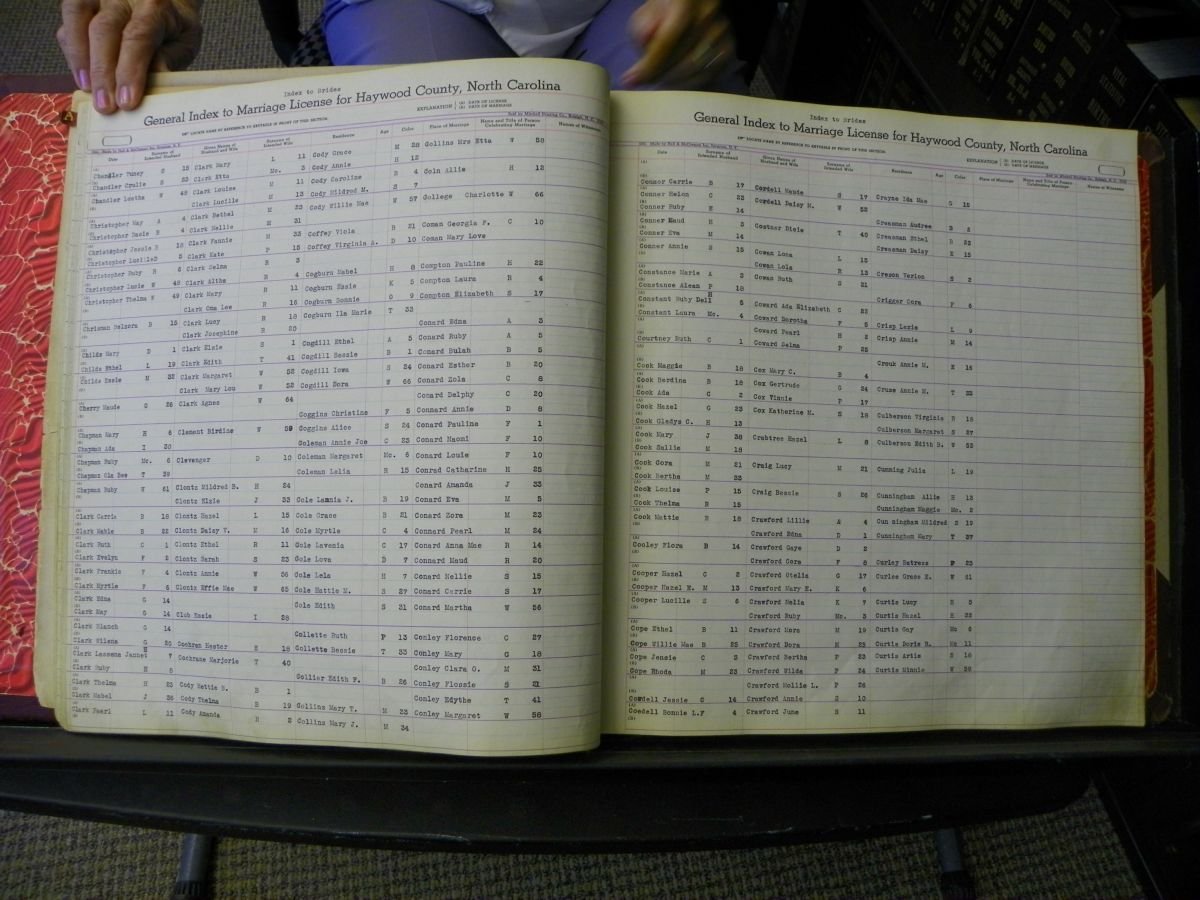 Index to Brides
General Index to Marriage License for Haywood County, North Carolina
Clark Mary L 11 Cody Grace M 28 Collins Mrs Etta W 58
Chandler Pansy S 15 Clark Etta Mc. 3 Cody Annie H 12
Clark Louise M 11 Cody Caroline B 4 Coln Allie H 12
Clark Lucille M 13 Cody Mildred M. S 7
Christopher May A 4 Clark Bethel M 23 Cody Willie Mae W 57 College Charlotte W 66
Clark Nellie H 31
Clark Fannie H 33 Coffey Viola B 21 Coman Georgia F. C 10
Clark Kate P 15 Coffey Virginia A. D 10 Coman Mary Love
Christopher Ruby R 6 Clark Selma R 3
Christopher Lucie W 48 Clark Altha R 4 Cogburn Mabel H 8 Compton Pauline H 22
Christopher Thelma W 49 Clark Mary R 11 Cogburn Essie K 5 Compton Laura R 4
Clark Oma Lee R 16 Cogburn Bonnie O 9 Compton Elizabeth S 17
Clark Lucy R 18 Cogburn Ila Marie T 32
Clark Josephine R 20 Conard Edna A 3
Childs Mary D 1 Clark Elsie S 1 Cogdill Ethel A 5 Conard Ruby A 5
Childs Ethel L 19 Clark Edith T 41 Cogdill Bessie B 1 Conard Bulah B 5
Childs Essie M 32 Clark Margaret W 52 Cogdill Iowa S 24 Conard Esther B 20
Clark Mary Lou W 52 Cogdill Zora W 66 Conard Zola C 8
Cherry Maude G 26 Clark Agnes W 64 Conard Delphy C 20
Coggins Christine F 5 Connard Annie D 8
Chapman Mary H 6 Clement Birdine W 59 Coggins Alice S 24 Conard Pauline F 1
Chapman Ada I 30 Coleman Annie Joe C 23 Conard Naomi F 10
Chapman Ruby Mc. 6 Clevenger D 10 Coleman Margaret Mc. 6 Conard Louie F 10
Chapman Ola Bee T 39 Coleman Lelia R 15 Conrad Catharine H 25
Chapman Ruby W 61 Clontz Mildred B. H 24 Conard Amanda J 33
Clontz Elzie J 33 Cole Lamnia J. B 19 Conard Eva M 5
Clark Carrie B 18 Clontz Hazel L 15 Cole Grace B 21 Conard Zora M 23
Clark Mable B 22 Clontz Daisy V. M 16 Cole Myrtle C 4 Connard Pearl M 24
Clark Ruth C 1 Clontz Ethel R 11 Cole Lavenia C 17 Conard Anna Mae R 14
Clark Evelyn F 2 Clontz Sarah S 23 Cole Lova D 7 Connard Maud R 20
Clark Frankie F 4 Clontz Annie W 56 Cole Lela H 7 Conard Nellie S 15
Clark Myrtle F 6 Clontz Effie Mae W 65 Cole Hattie M. S 27 Conard Carrie S 17
Clark Edna G 14 Cole Edith S 31 Conard Martha W 56
Clark May G 14 Club Essie I 28
Clark Blanch G 14 Collette Ruth P 13 Conley Florence C 27
Clark Wilena G 20 Cochran Hester E 18 Collette Bessie T 33 Conley Mary G 18
Clark Lassena Jannet H 7 Cochrane Marjorie T 40 Conley Clara G. M 31
Clark Ruby H 8 Collier Edith F. B 26 Conley Flossie S 21
Clark Thelma H 23 Cody Hettie B. B 1 Conley Edythe T 41
Clark Mabel J 36 Cody Thelma B 19 Collins Mary T. M 23 Conley Margaret W 56
Clark Pearl L 11 Cody Amanda H 2 Collins Mary J. M 34
Index to Brides
General Index to Marriage License for Haywood County, North Carolina
Connor Carrie B 17 Cordell Maude S 17 Crayne Ida Mae G 15
Conner Helen C 23 Cordell Daisy M. W 52
Conner Ruby H 14 Cressman Audree S 8
Conner Maud H 3 Costner Bicie T 40 Cressman Ethel B 23
Conner Eva M 14 Cressman Daisy K 15
Conner Annie S 15 Cowan Lona L 15
Cowan Lola R 13 Creson Verlon S 2
Constance Marie A 3 Cowan Ruth S 21
Constance Alean P 18 Criggar Cora F 6
Constant Ruby Dell H 5 Coward Ada Elizabeth C 23
Constant Laura Mc. 4 Coward Dorotha F 5 Crisp Lezie L 9
Coward Pearl H 2 Crisp Annie M 14
Courtney Ruth C 1 Coward Selma P 25
Crouk Annie M. E 16
Cook Maggie B 18 Cox Mary C. B 4
Cook Berdina B 18 Cox Gertrude G 24 Cruse Annie M. T 33
Cook Ada C 2 Cox Vinnie P 17
Cook Hazel G 23 Cox Katherine M. S 18 Culberson Virginia R 18
Cook Gladys C. H 13 Culberson Margaret S 27
Cook Mary J 38 Crabtree Hazel L 8 Culberson Edith B. W 53
Cook Sallie M 18
Cook Cora M 21 Craig Lucy M 21 Cunning Julia L 19
Cook Bertha M 33
Cook Louise P 15 Craig Bessie S 26 Cunningham Allie H 13
Cook Thelma R 15 Cunningham Maggie Mc. 2
Cook Mattie S 18 Crawford Lillie A 4 Cunningham Mildred S 19
Crawford Edna D 1 Cunningham Mary T 37
Cooley Flora B 14 Crawford Gaye D 2
Crawford Cora F 8 Curley Hatress P 23
Cooper Hazel C 2 Crawford Otelia G 17 Curlee Grace E. W 61
Cooper Hazel E. M 13 Crawford Mary E. K 6
Cooper Lucille S 6 Crawford Melia K 7 Curtis Lucy E 5
Crawford Ruby Mc. 3 Curtis Hazel H 22
Cope Ethel B 11 Crawford Nora M 19 Curtis Gay Mc 6
Cope Willie Mae B 25 Crawford Dora H 25 Curtis Doris R. Mc 11
Cope Jensie C 2 Crawford Bertha P 23 Curtis Artie S 16
Cope Rhoda M 23 Crawford Wilda P 24 Curtis Minnie W 59
Crawford Mollie L. P 26
Cordell Jessie C 14 Crawford Annie S 10
Coedell Bonnie L. F 4 Crawford June S 11